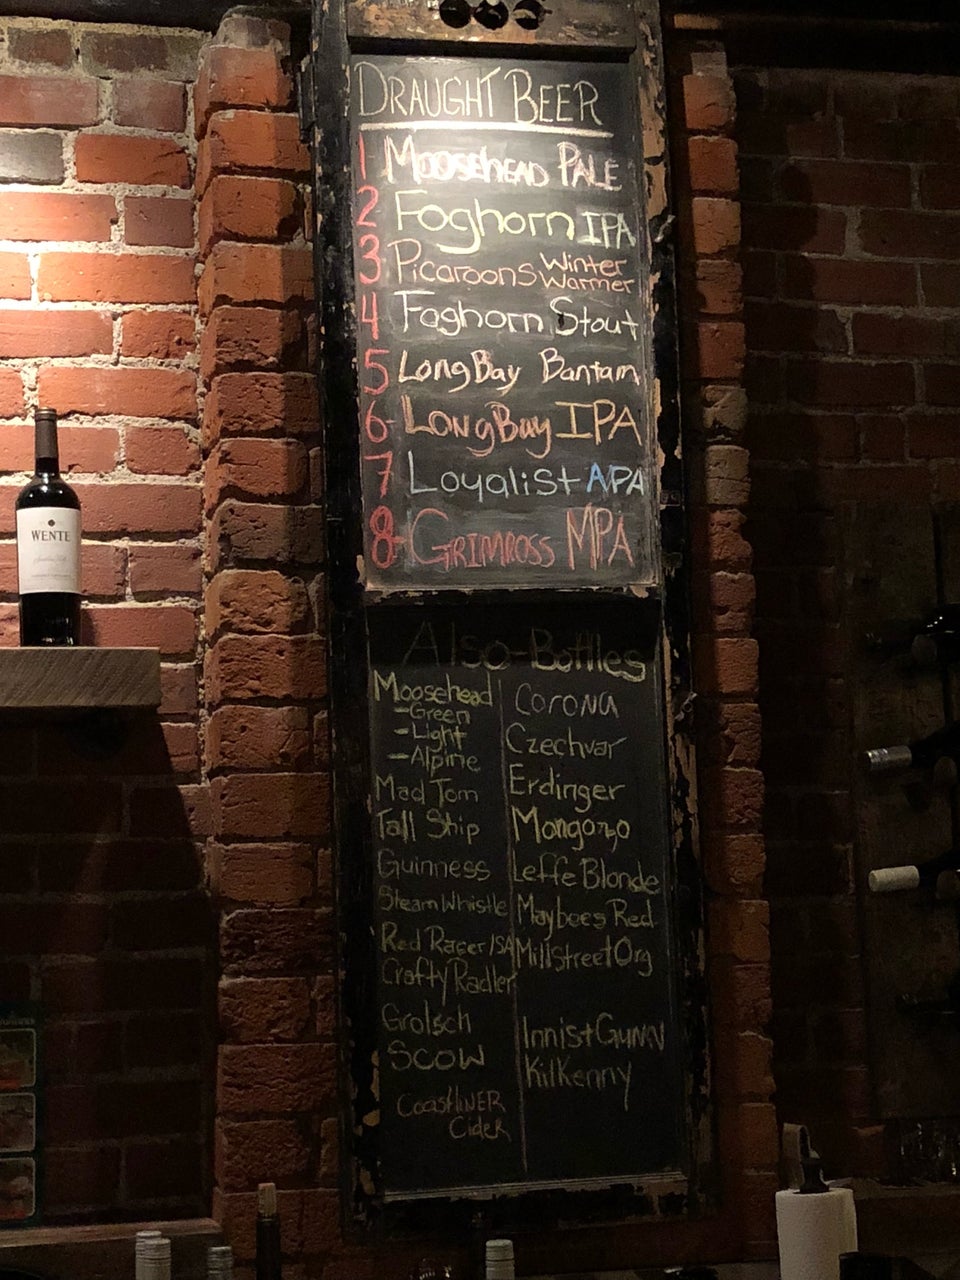 DRAUGHT BEER
1 Moosehead PALE
2 Foghorn IPA
3 Picaroons Winter Warmer
4 Foghorn Stout
5 LongBay Bantam
6 LongBay IPA
7 Loyalist APA
8- GRIMROSS MPA
Also-Bottles
Moosehead
-Green
-Light
-Alpine
Mad Tom
Tall Ship
Guinness
Steam Whistle
Red Racer ISA
Crafty Radler
Grolsch
SCOW
COASTLINER
Cider
Corona
Czechvar
Erdinger
Mongozo
Leffe Blonde
Maybees Red
Millstreet Org
Innis+Gunn
Kilkenny
WENTE